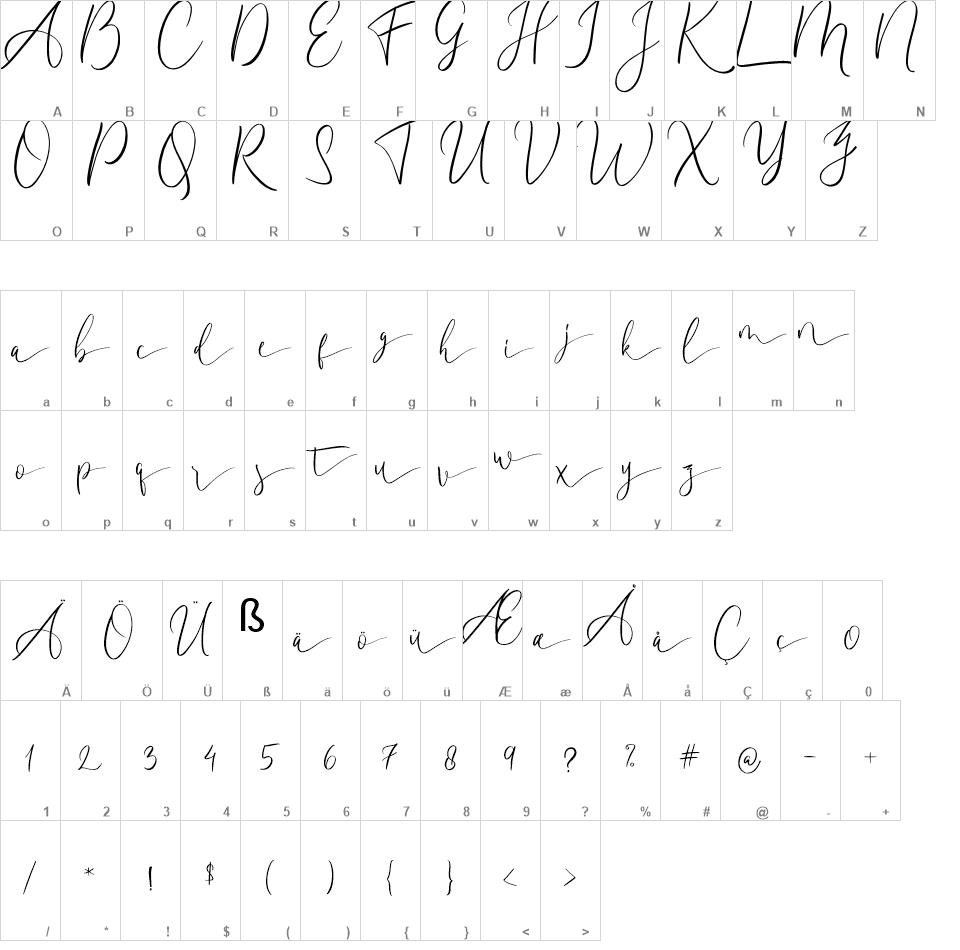 A B C D E F G H I J K L M N
A B C D E F G H I J K L M N
O P Q R S T U V W X Y Z
O P Q R S T U V W X Y Z
a b c d e f g h i j k l m n
a b c d e f g h i j k l m n
o p q r s t u v w x y z
o p q r s t u v w x y z
Ä Ö Ü ß ä ö ü Æ æ Å å Ç ç 0
Ä Ö Ü ß ä ö ü Æ æ Å å Ç ç 0
1 2 3 4 5 6 7 8 9 ? % # @ - +
1 2 3 4 5 6 7 8 9 ? % # @ - +
/ * ! $ ( ) { } < >
/ * ! $ ( ) { } < >